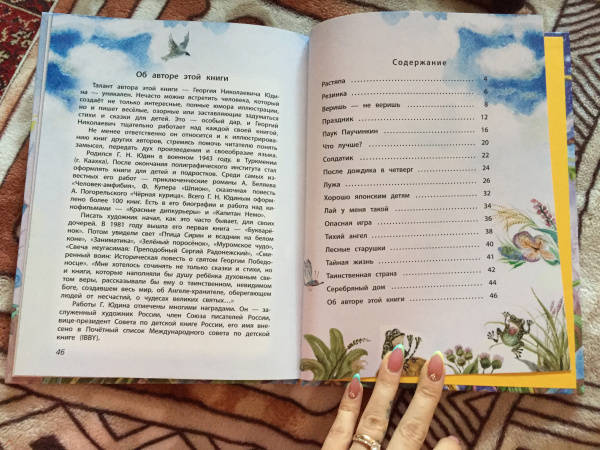 Об авторе этой книги
Талант автора этой книги — Георгия Николаевича Юди-
на — уникален. Нечасто можно встретить человека, который
создаёт не только интересные, полные юмора иллюстрации,
но и пишет весёлые, озорные или заставляющие задуматься
стихи и сказки для детей. Это — особый дар, и Георгий
Николаевич тщательно работает над каждой своей книгой.
Не менее ответственно он относится и к иллюстрирова-
нию книг других авторов, стремясь помочь читателю понять
замысел, передать дух произведения и своеобразие языка.
Родился Г. Н. Юдин в военном 1943 году, в Туркмении
(г. Каахка). После окончания полиграфического института стал
оформлять книги для детей и подростков. Среди самых из-
вестных его работ — приключенческие романы А. Беляева
«Человек-амфибия», Ф. Купера «Шпион», сказочная повесть
А. Погорельского «Чёрная курица». Всего Г. Н. Юдиным оформ-
лено более 100 книг. Есть в его биографии и работа над ки-
нофильмами — «Красные дипкурьеры» и «Капитан Немо».
Писать художник начал, как это часто бывает, для своих
дочерей. В 1981 году вышла его первая книга — «Букварё-
нок». Потом увидели свет «Птица Сирин и всадник на белом
коне», «Заниматика», «Зелёный поросёнок», «Муромское чудо»,
«Свеча неугасимая: Преподобный Сергий Радонежский», «Сми-
ренный воин: Историческая повесть о святом Георгии Победо-
носце». «Мне хотелось сочинять не только сказки и стихи, но
и книги, которые наполняли бы душу ребёнка духовным све-
том веры, рассказывали бы ему о таинственном, невидимом
Боге, создавшем весь мир, об Ангеле-хранителе, оберегающем
людей от несчастий, о чудесах великих святых...»
Работы Г. Юдина отмечены многими наградами. Он — за-
служенный художник России, член Союза писателей России,
вице-президент Совета по детской книге России, его имя вне-
сено в Почётный список Международного совета по детской
книге (IBBY).
46
Содержание
Растяпа 4
Резинка 6
Веришь — не веришь 8
Праздник 12
Паук Паучинкин 16
Что лучше? 20
Солдатик 22
После дождика в четверг 24
Лужа 26
Хорошо японским детям 32
Лай у меня такой 34
Опасная игра 36
Тихий ангел 38
Лесные старушки 40
Тайная жизнь 41
Таинственная страна 42
Серебряный дом 44
Об авторе этой книги 46